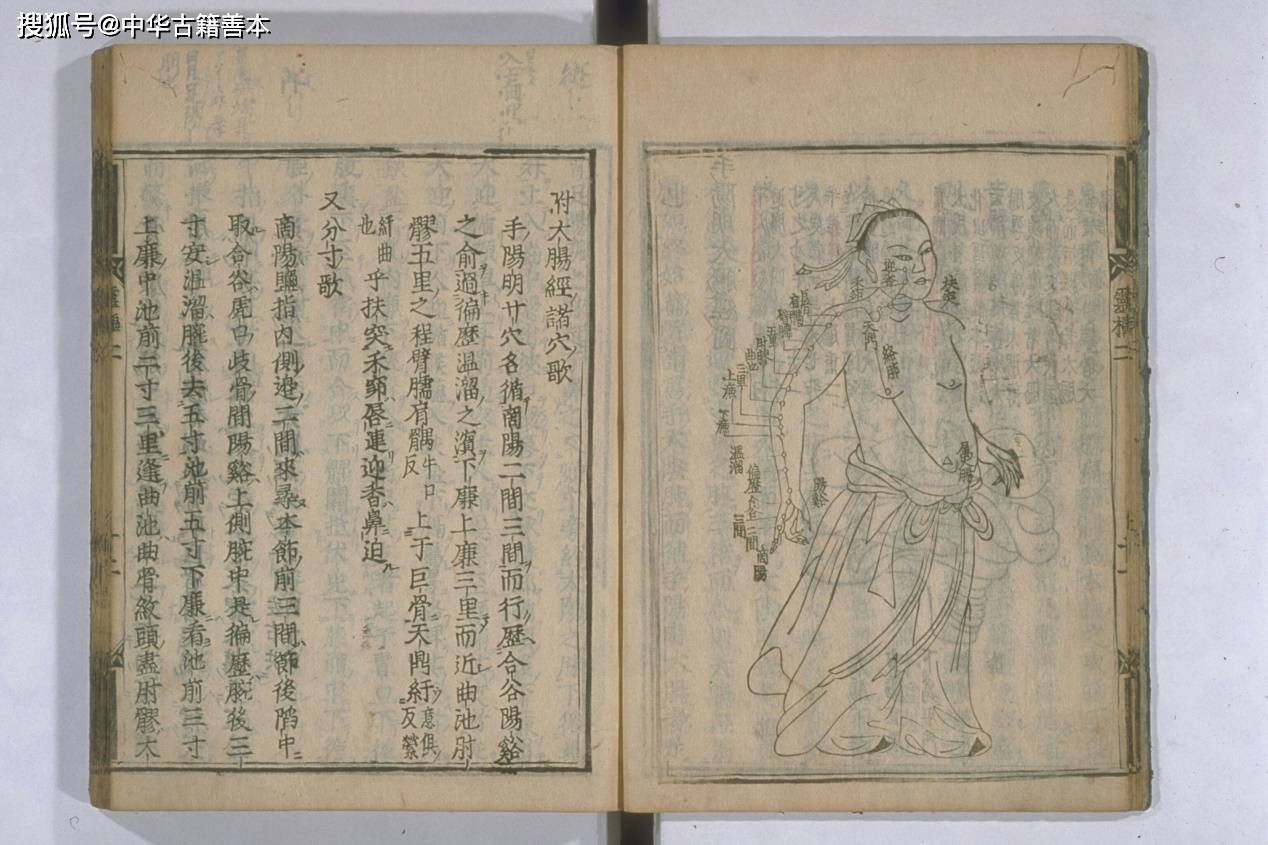 搜狐号@中华古籍善本
靈樞二
扶突
天鼎
絡肺
屬腸
曲池
三里
上廉
下廉
溫溜
偏歷
合谷
二間
三間
商陽
陽谿
附大腸經諸穴歌
手陽明廿穴名循商陽二間三間而行歷合谷陽谿
之俞過徧歷溫溜之濱下廉上廉三里而近曲池肘
髎五里之程臂臑肩髃牛口反上于巨骨天鼎紆意俱反縈
紆曲也乎扶突禾窌唇連迎香鼻迫
又分寸歌
商陽鹽指内側邊二間來尋本節前三間節後陷中
取合谷虎口歧骨間陽谿上側腕中是徧歷腕後三
寸安温溜腕後去五寸池前五寸下廉看池前三寸
上廉中池前二寸三里逢曲池曲骨紋頭盡肘髎大